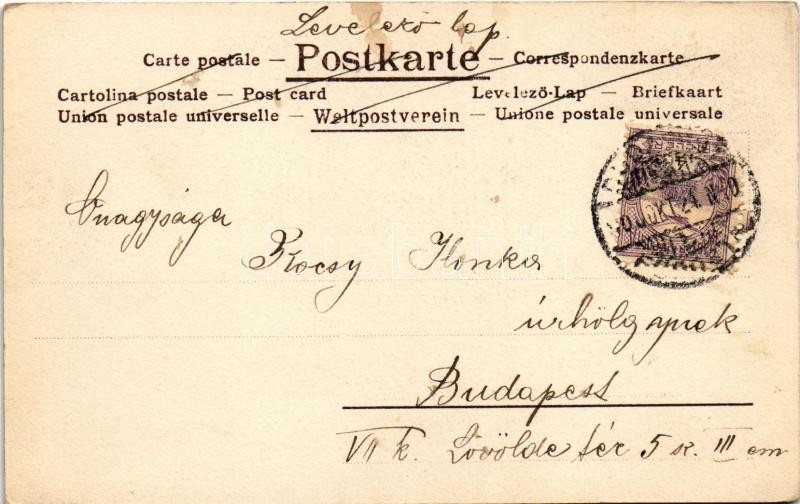 Levelező lap.
Carte postale — Postkarte — Correspondenzkarte
Cartolina postale — Post card
Levelező-Lap — Briefkaart
Union postale universelle — Weltpostverein — Unione postale universale
Őnagysága
Kocsy Ilonka
úrhölgynek
Budapest
VII k. Lövölde tér 5 sz. III em